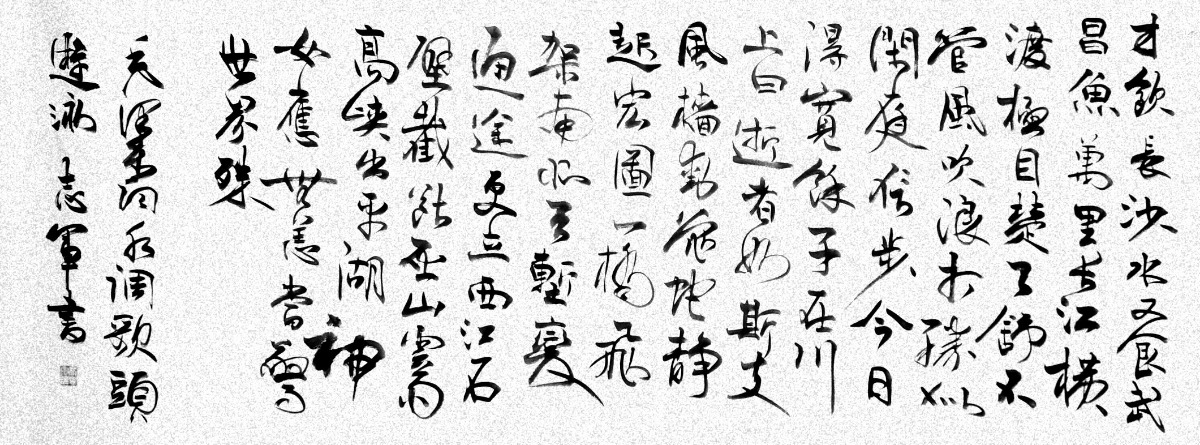 才飲長沙水又食武
昌魚萬里長江橫
渡極目楚天舒不
管風吹浪打勝似
閑庭信步今日
得寬餘子在川
上曰逝者如斯夫
風檣動龜蛇靜
起宏圖一橋飛
架南北天塹變
通途更立西江石
壁截斷巫山雲雨
高峽出平湖神
女應無恙當驚
世界殊
毛澤東詞水調歌頭
遊泳 志軍書